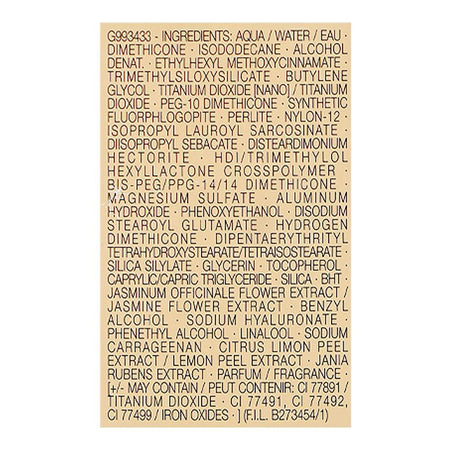 G993433 - INGREDIENTS: AQUA / WATER / EAU ·
DIMETHICONE · ISODODECANE · ALCOHOL
DENAT. · ETHYLHEXYL METHOXYCINNAMATE ·
TRIMETHYLSILOXYSILICATE · BUTYLENE
GLYCOL · TITANIUM DIOXIDE [NANO] / TITANIUM
DIOXIDE · PEG-10 DIMETHICONE · SYNTHETIC
FLUORPHLOGOPITE · PERLITE · NYLON-12 ·
ISOPROPYL LAUROYL SARCOSINATE ·
DIISOPROPYL SEBACATE · DISTEARDIMONIUM
HECTORITE · HDI/TRIMETHYLOL
HEXYLLACTONE CROSSPOLYMER ·
BIS-PEG/PPG-14/14 DIMETHICONE ·
MAGNESIUM SULFATE · ALUMINUM
HYDROXIDE · PHENOXYETHANOL · DISODIUM
STEAROYL GLUTAMATE · HYDROGEN
DIMETHICONE · DIPENTAERYTHRITYL
TETRAHYDROXYSTEARATE/TETRAISOSTEARATE ·
SILICA SILYLATE · GLYCERIN · TOCOPHEROL ·
CAPRYLIC/CAPRIC TRIGLYCERIDE · SILICA · BHT ·
JASMINUM OFFICINALE FLOWER EXTRACT /
JASMINE FLOWER EXTRACT · BENZYL
ALCOHOL · SODIUM HYALURONATE ·
PHENETHYL ALCOHOL · LINALOOL · SODIUM
CARRAGEENAN · CITRUS LIMON PEEL
EXTRACT / LEMON PEEL EXTRACT · JANIA
RUBENS EXTRACT · PARFUM / FRAGRANCE ·
[+/- MAY CONTAIN / PEUT CONTENIR: CI 77891 /
TITANIUM DIOXIDE · CI 77491, CI 77492,
CI 77499 / IRON OXIDES · ] (F.I.L. B273454/1)